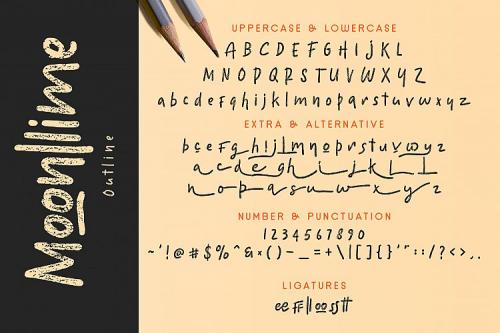 Moonllime
Outline
UPPERCASE & LOWERCASE
ABCDEFGHIJKL
MNOPQRSTUVWXYZ
abcdefghijklmnopqrstuvwxyz
EXTRA & ALTERNATIVE
bcefghijlmnoprstuvwyz
acdeghijkll
nopqsuwxyz
NUMBER & PUNCTUATION
1234567890
~'!@#$%^&*()-_=+\|[]{}'":;/?<>,.
LIGATURES